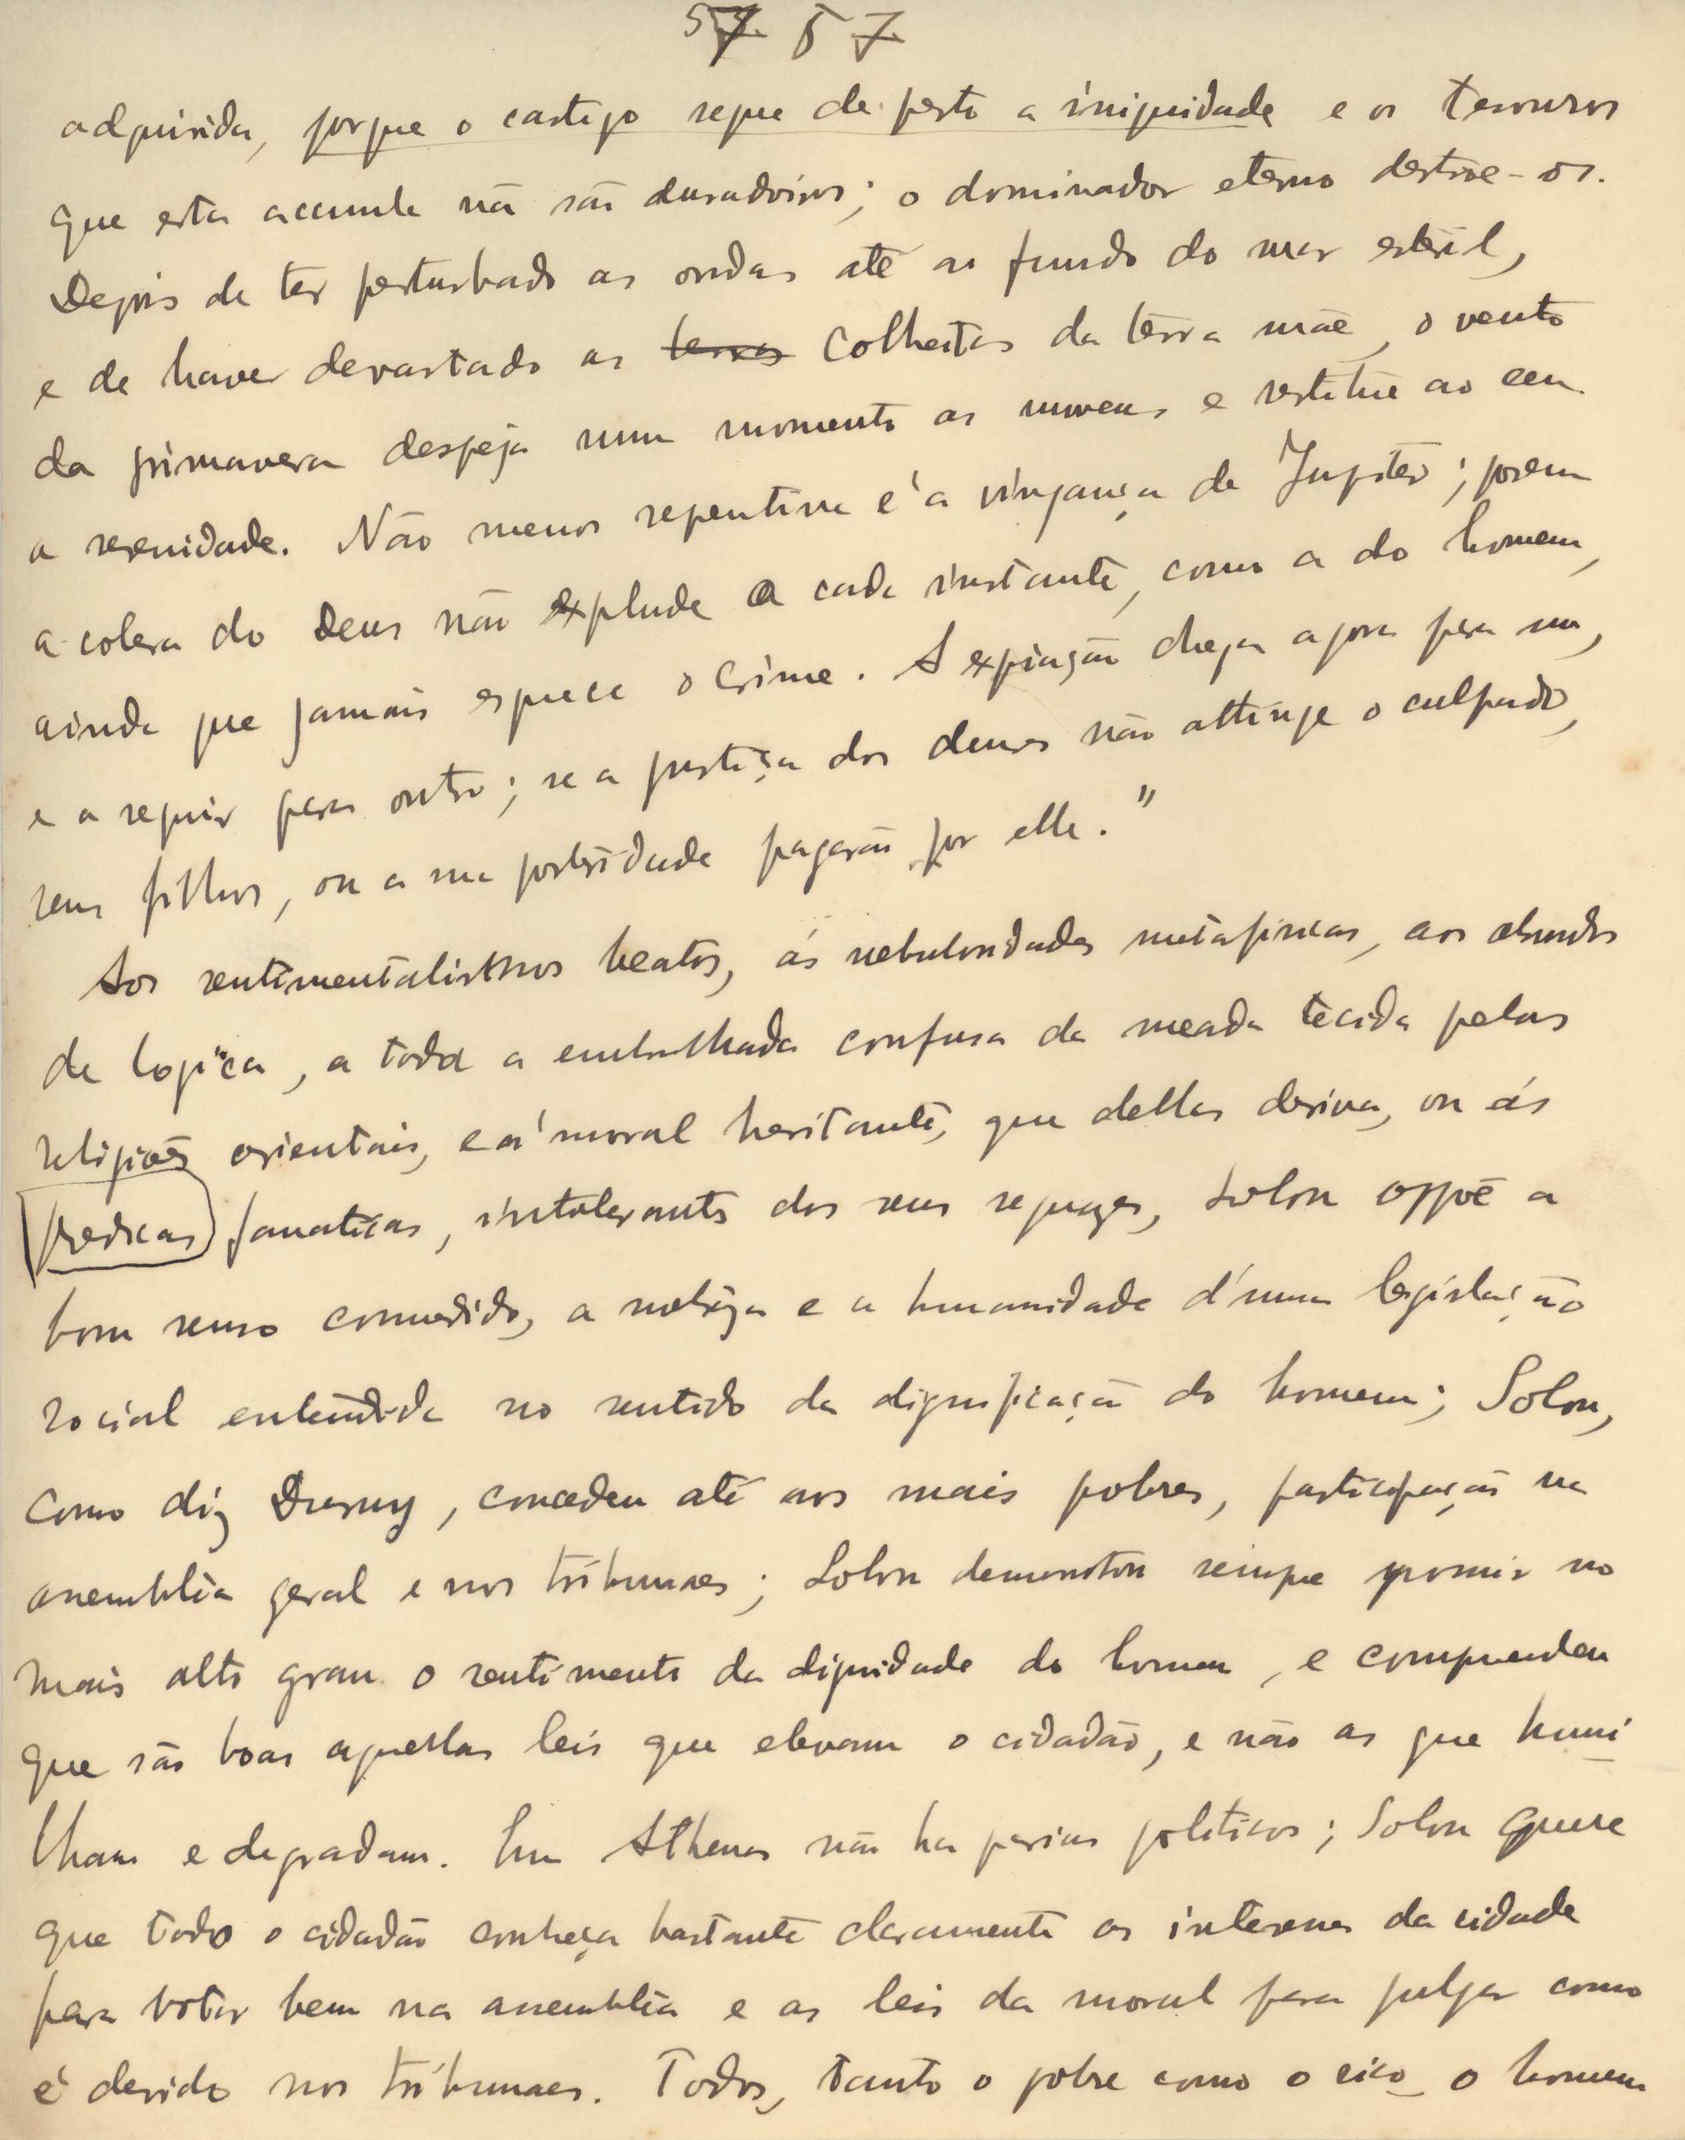 57 57
adquirida, porque o castigo segue de perto a iniquidade e os tesouros
que esta accumula não são duradoiros; o dominador eterno destroe-os.
Depois de ter perturbado as ondas até ao fundo do mar esteril,
e de haver devastado as terras colheitas da terra mãe, o vento
da primavera despeja num momento as nuvens e restitue ao ceu
a serenidade. Não menos repentina é a vingança de Jupiter; porem
a colera do Deus não explude a cada instante, como a do homem,
ainda que jamais esquece o crime. A expiação chega agora para um,
e a seguir para outro; se a justiça dos deuses não attinge o culpado,
seus filhos, ou a sua posteridade pagarão por elle."
Aos sentimentalismos beatos, ás nebulosidades metafisicas, aos absurdos
de logica, a toda a embrulhada confusa da meada tecida pelas
religiões orientais, e á moral hesitante, que dellas deriva, ou ás
predicas fanaticas, intolerants dos seus sequazes, Solon oppõe a
bom senso comedido, a nobreza e a humanidade d'uma legislação
social entendida no sentido da dignificação do homem; Solon,
como diz Duruy, concedeu até aos mais pobres, participação na
assemblêa geral e nos tribunaes; Solon demonstrou sempre possuir no
mais alto grau o sentimento da dignidade do homem, e comprendeu
que são boas aquellas leis que elevam o cidadão, e não as que humi
lham e degradam. Em Athenas não ha parias politicos; Solon quere
que todo o cidadão conheça bastante claramente os interesses da cidade
para votar bem na assemblêa e as leis da moral para julgar como
é devido nos tribunaes. Todos, tanto o pobre como o rico, o homem